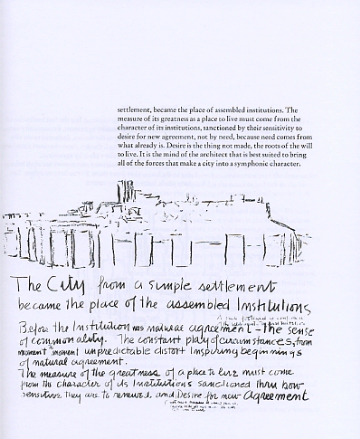 settlement, became the place of assembled institutions. The
measure of its greatness as a place to live must come from the
character of its institutions, sanctioned by their sensitivity to
desire for new agreement, not by need, because need comes from
what already is. Desire is the thing not made, the roots of the will
to live. It is the mind of the architect that is best suited to bring
all of the forces that make a city into a symphonic character.
The City from a simple settlement
became the place of the assembled Institutions
Before the Institution was natural agreement – The sense
of commonality. The constant play of circumstances, from
moment to moment unpredictable distort Inspiring beginnings
of natural agreement.
The measure of the greatness of a place to live must come
from the character of its Institutions sanctioned thru how
sensitive they are to renewed and Desire for new Agreement